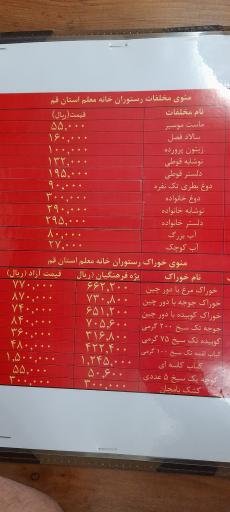 منوی مخلفات رستوران خانه معلم استان قم
نام مخلفات قیمت(ریال)
ماست موسیر ۵۵,۰۰۰
سالاد فصل ۱۶۰,۰۰۰
زیتون پرورده ۱۰۰,۰۰۰
نوشابه قوطی ۱۳۲,۰۰۰
دلستر قوطی ۱۹۵,۰۰۰
دوغ بطری تک نفره ۹۰,۰۰۰
دوغ خانواده ۳۰۰,۰۰۰
نوشابه خانواده ۲۹۰,۰۰۰
دلستر خانواده ۲۹۵,۰۰۰
آب بزرگ ۸۰,۰۰۰
آب کوچک ۲۷,۰۰۰
منوی خوراک رستوران خانه معلم استان قم
نام خوراک ویژه فرهنگیان (ریال) قیمت آزاد (ریال)
خوراک مرغ با دور چین ۶۶۲,۲۰۰ ۷۷۰,۰۰۰
خوراک جوجه با دور چین ۷۳۰,۸۰۰ ۸۷۰,۰۰۰
خوراک کوبیده با دور چین ۶۵۱,۲۰۰ ۷۴۰,۰۰۰
جوجه تک سیخ ۲۰۰ گرمی ۷۰۵,۶۰۰ ۸۴۰,۰۰۰
کوبیده تک سیخ ۷۵ گرمی ۳۱۶,۸۰۰ ۳۶۰,۰۰۰
کباب لقمه تک سیخ ۱۰۰ گرمی ۴۲۲,۴۰۰ ۴۸۰,۰۰۰
کباب کاسه ای ۱,۲۴۵,۰۰۰ ۱,۵۰۰,۰۰۰
گوجه یک سیخ ۵ عددی ۵۰,۶۰۰ ۵۵,۰۰۰
کشک بادمجان ۳۰۰,۰۰۰ ۳۰۰,۰۰۰